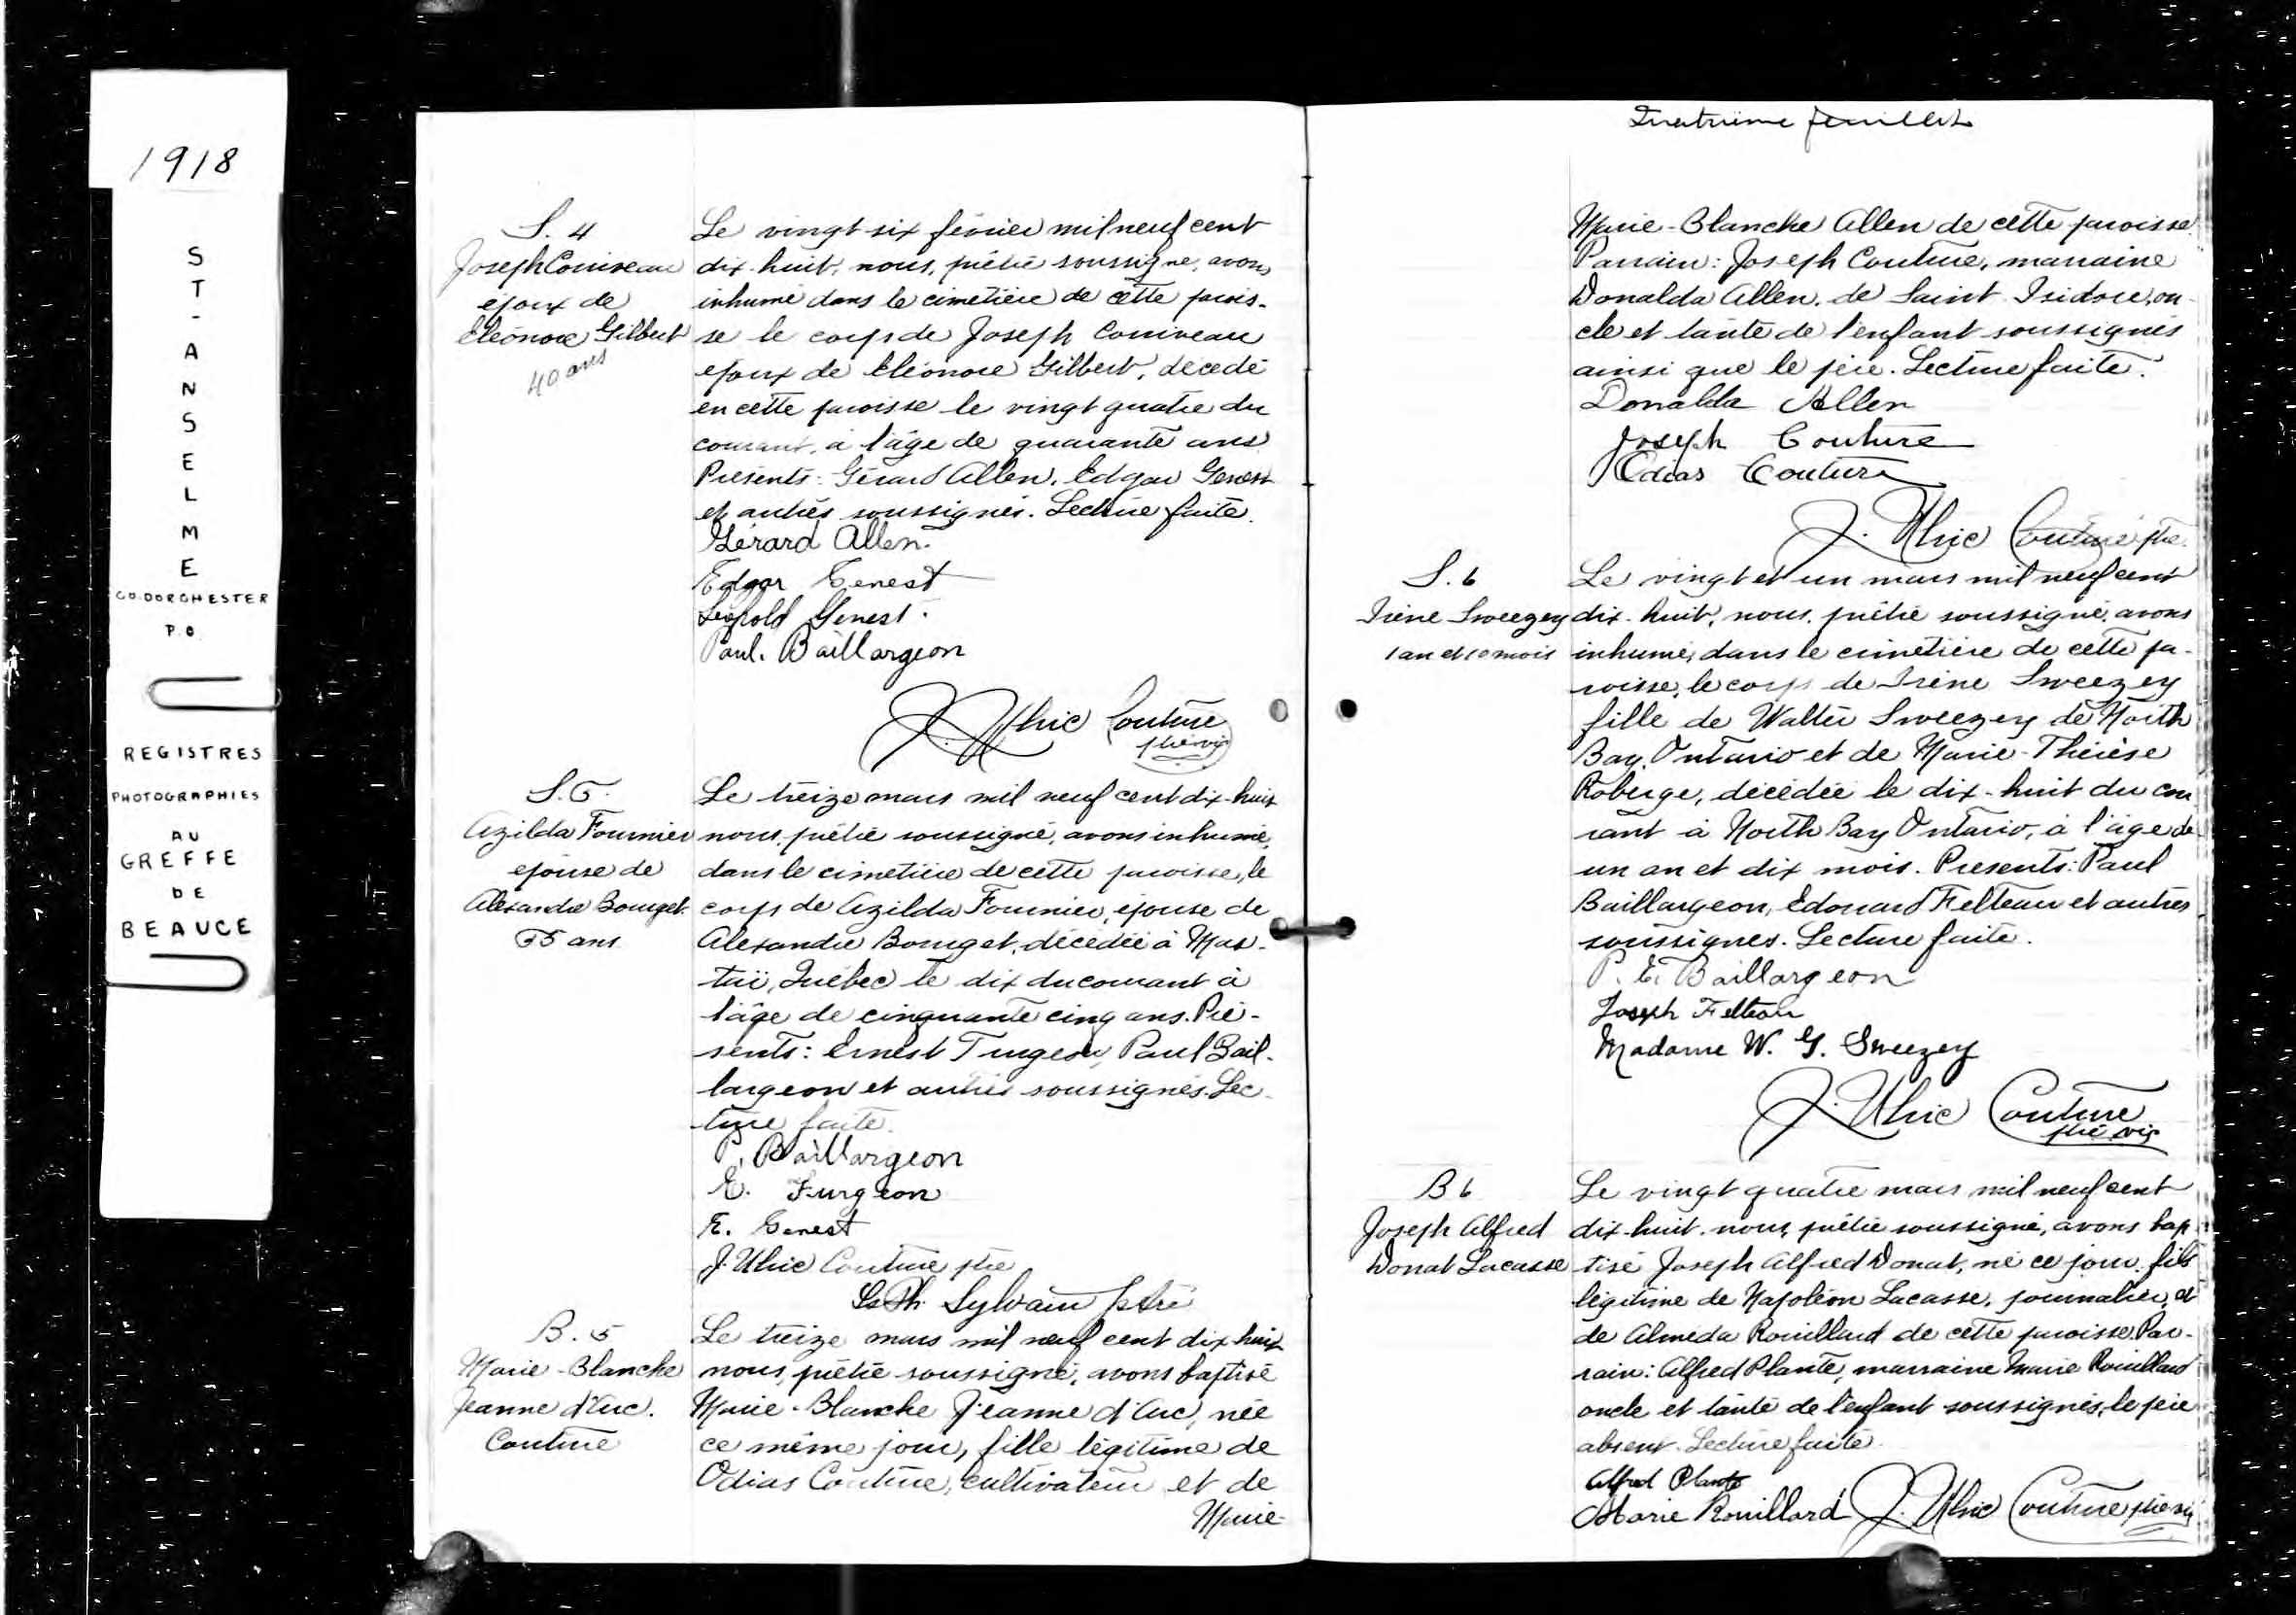 1918
ST-ANSELME
CO. DORCHESTER
P.Q.
REGISTRES
PHOTOGRAPHIES
AU
GREFFE
DE
BEAUCE
S. 4
Joseph Couiveau
époux de
Eléonore Gilbert
40 ans
Le vingt-six février mil neuf cent
dix-huit, nous, prêtre soussigné, avons
inhumé dans le cimetière de cette parois-
se le corps de Joseph Couiveau
époux de Eléonore Gilbert, décédé
en cette paroisse le vingt quatre du
courant, à l'âge de quarante ans
Présents: Gérard Allen, Edgar Genest
et autres soussignés. Lecture faite.
Gérard Allen.
Edgar Genest
Léopold Genest.
Paul. Baillargeon
J. Ulric Couture
ptre vic
S. 5.
Azilda Fournier
épouse de
Alexandre Bourget.
55 ans
Le treize mars mil neuf cent dix-huit
nous, prêtre soussigné, avons inhumé,
dans le cimetière de cette paroisse, le
corps de Azilda Fournier, épouse de
Alexandre Bourget, décédée à Mas-
taï, Québec le dix du courant à
l'âge de cinquante cinq ans. Pré-
sents: Ernest Turgeon, Paul Bail-
largeon et autres soussignés. Lec-
ture faite.
P. Baillargeon
E. Turgeon
E. Genest
J. Ulric Couture ptre
Ls Ph. Sylvain ptre
B. 5
Marie-Blanche
Jeanne d'Arc.
Couture
Le treize mars mil neuf cent dix-huit
nous, prêtre soussigné, avons baptisé
Marie-Blanche Jeanne d'Arc, née
ce même jour, fille légitime de
Odias Couture, cultivateur et de
Marie-
Quatrième feuillet
Marie-Blanche Allen de cette paroisse.
Parrain: Joseph Couture, marraine
Donalda Allen, de Saint Isidore, on-
cle et tante de l'enfant soussignés
ainsi que le père. Lecture faite.
Donalda Allen
Joseph Couture
Odias Couture
J. Ulric Couture ptre.
S. 6
Irène Sweezey
1 an et 10 mois
Le vingt et un mars mil neuf cent
dix-huit, nous, prêtre soussigné, avons
inhumé, dans le cimetière de cette pa-
roisse, le corps de Irène Sweezey
fille de Walter Sweezey de North
Bay, Ontario et de Marie-Thérèse
Roberge, décédée le dix-huit du cou
rant à North Bay Ontario, à l'âge de
un an et dix mois. Présents: Paul
Baillargeon, Edouard Felteau et autres
soussignés. Lecture faite.
P. E. Baillargeon
Joseph Felteau
Madame W. G. Sweezey
J. Ulric Couture
ptre vic
B 6
Joseph Alfred
Donat Lacasse
Le vingt quatre mars mil neuf cent
dix-huit, nous, prêtre soussigné, avons bap
tisé Joseph Alfred Donat, né ce jour, fils
légitime de Napoléon Lacasse, journalier, et
de Alméda Rouillard de cette paroisse. Par-
rain: Alfred Plante, marraine Marie Rouillard
oncle et tante de l'enfant soussignés, le père
absent. Lecture faite.
Alfred Plante
Marie Rouillard
J. Ulric Couture ptre vic